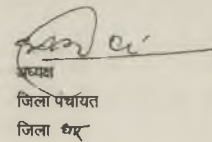 अध्यक्ष
जिला पंचायत
जिला धार